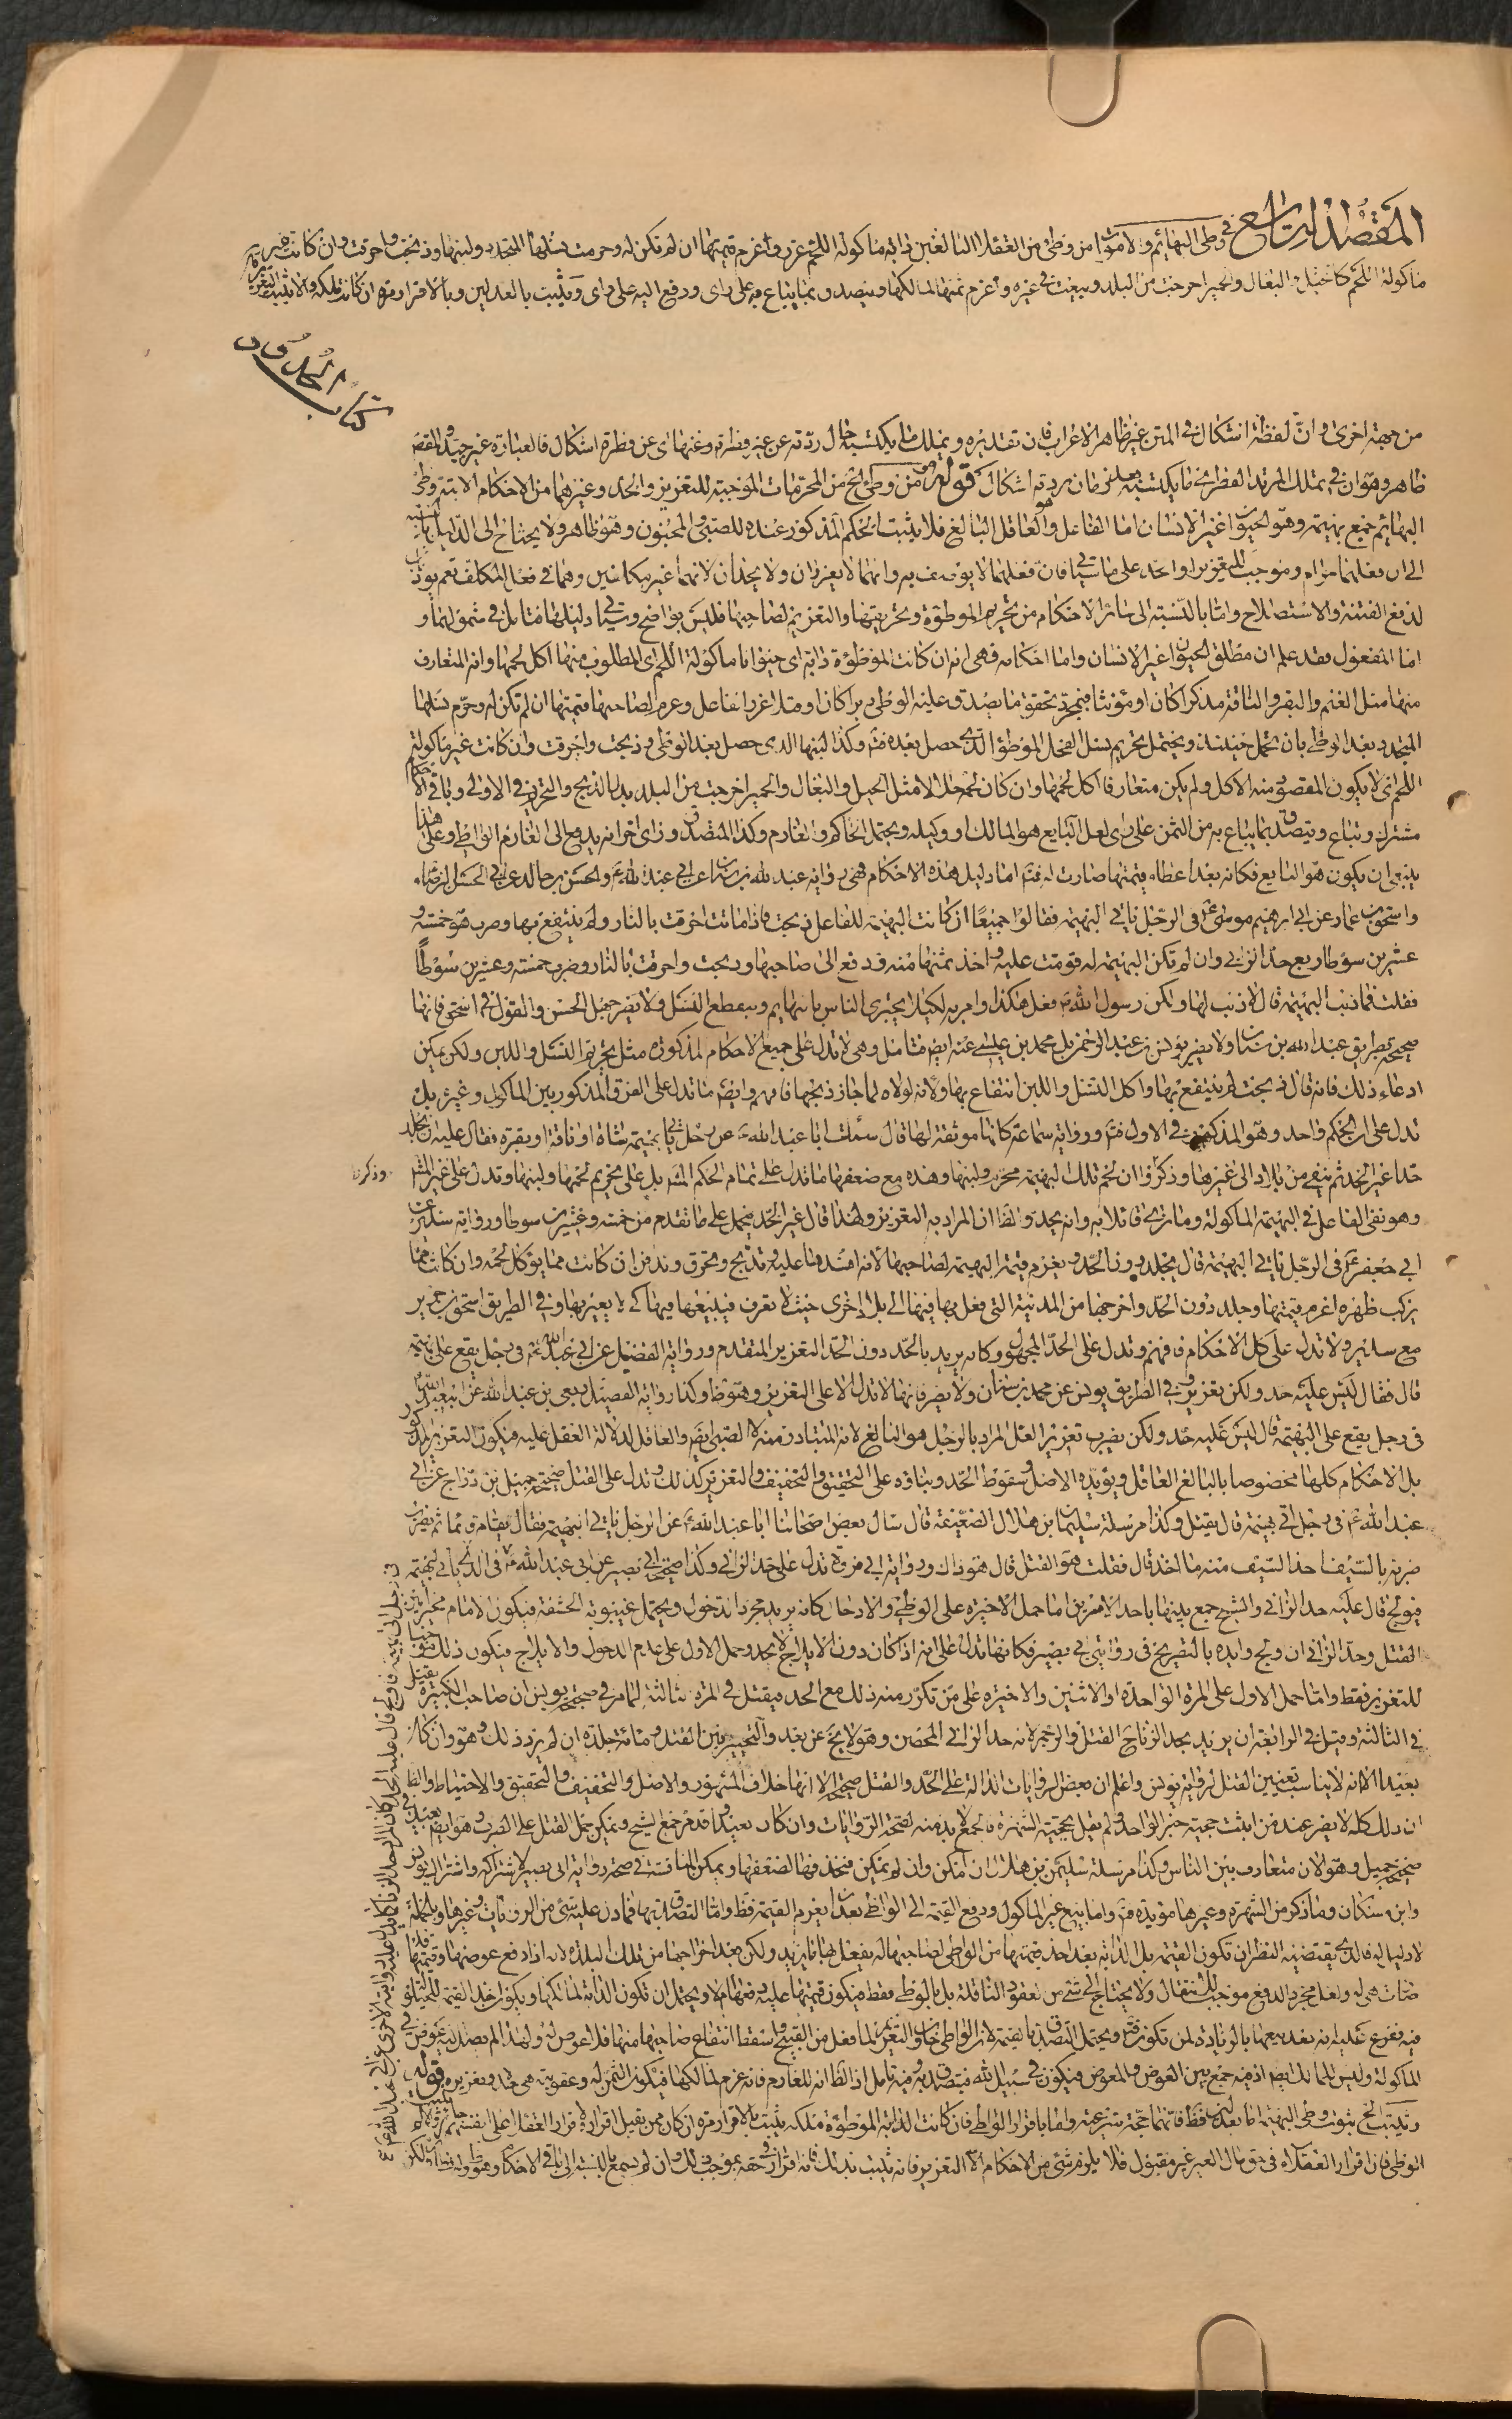 المقصد الرابع في وطي البهائم والاموات من وطئ من العقلاء البالغين دابة ماكولة اللحم عزر واغرم قيمتها ان لم تكن له وحرمت نسلها المتجدد ولبنها وذبحت واحرقت وان كانت غير
ماكولة اللحم كالخيل والبغال والحمير اخرجت من البلد وبيعت في غيره واغرم ثمنها لمالكها ويتصدق بما يباع به على راى ودفع اليه على راى ويثبت بالعدلين وبالاقرار مرة ان كانت ملكه والا يثبت التعزير
كتاب الحدود
من جهة اخرى وان لفظة اشكال في المتن غير ظاهر الاعراب فان تقديره ويملك ما يكتسبه حال ردته عن غير فطرة وعنها اى عن فطرة اشكال فالعبارة غير جيدة والمقصد
ظاهر وهو ان في تملك المرتد الفطرى ما يكتسبه زمان ردته اشكال قوله ومن وطئ الخ من المحرمات الموجبة للتعزير والحد وغيرهما من الاحكام الاتية وطئ
البهائم جمع بهيمة وهو الحيوان غير الانسان اما الفاعل فهو العاقل البالغ فلا يثبت الحكم المذكور عنده للصبي والمجنون وهو ظاهر ولا يحتاج الى الدليل
الى ان فعلهما حرام وموجب للتعزير او الحد على ما سياتي فان فعلهما لا يوصف به وانهما لا يعزران ولا يحدان لانهما غير مكلفين وهما في فعل المكلف نعم يؤدبان
لدفع الفتنة والاستصلاح واما بالنسبة الى سائر الاحكام من تحريم الموطوءة وتحريقها والتغريم لصاحبها فليس بواضح وسياتي دليلها فتامل في شمولهما و
اما المفعول فقد علم ان مطلق الحيوان غير الانسان واما احكامه فهي انه ان كانت الموطوءة دابة اى حيوانا ماكولة اللحم اى المطلوب منها اكل لحمها وانه المتعارف
منها مثل الغنم والبقر والناقة مذكرا كان او مؤنثا فبمجرد تحقق ما يصدق عليه الوطي دبرا كان او قبلا عزر الفاعل وغرم لصاحبها قيمتها ان لم تكن له وحرم نسلها
المتجدد بعد الوطي بان تحمل حينئذ ويحتمل تحريم نسل الفحل الموطوء الذي حصل بعده فتم وكذا لبنها الذي حصل بعد الوطي وذبحت واحرقت وان كانت غير ماكولة
اللحم اى لا يكون المقصود منه الاكل ولم يكن متعارفا اكل لحمها وان كان لحمه حلالا مثل الخيل والبغال والحمير اخرجت من البلد بدل الذبح والتحريق في الاولى وباقي الاحكام
مشترك وتباع ويتصدق بما يباع به من الثمن على راى لعل البايع هو المالك او وكيله ويحتمل الحاكم والغارم وكذا المتصدق وراى اخر انه يدفع الى الغارم الواطي وعلى هذا
ينبغي ان يكون هو البايع فكانه بعد اعطاء قيمتها صارت له فتم اما دليل هذه الاحكام فهي رواية عبد الله بن سنان عن ابي عبد الله ع والحسين بن خالد عن ابي الحسن الرضا ع
واسحق بن عمار عن ابي ابرهيم موسى ع في الرجل ياتي البهيمة فقالوا جميعا ان كانت البهيمة للفاعل ذبحت فاذا ماتت احرقت بالنار ولم ينتفع بها وضرب هو خمسة و
عشرين سوطا ربع حد الزاني وان لم تكن البهيمة له قومت عليه واخذ ثمنها منه ودفع الى صاحبها وذبحت واحرقت بالنار وضرب خمسة وعشرين سوطا
فقلت فما ذنب البهيمة قال لا ذنب لها ولكن رسول الله ص فعل هكذا وامر به لكيلا يجترى الناس بالبهايم وينقطع النسل ولا يضر جهل الحسن والقول في اسحق فانها
صحيحة بطريق عبد الله بن سنان ولا يضر يونس بن عبد الرحمن بل محمد بن عيسى عنه ايضا فتامل وهي لا تدل على جميع الاحكام المذكورة مثل تحريم النسل واللبن ولكن يمكن
ادعاء ذلك فانه قال ذبحت ولم ينتفع بها واكل النسل واللبن انتفاع بها ولانه لولاه لما جاز ذبحها فافهم وايضا ما تدل على الفرق المذكور بين الماكول وغيره بل
تدل على ان الحكم واحد وهو المذكور في الاول فتم ورواية سماعة كانها موثقة لها قال سئلت ابا عبد الله ع عن رجل ياتي بهيمة شاة او ناقة او بقرة فقال عليه ان يجلد
حدا غير الحد ثم ينفى من بلاده الى غيرها وذكروا ان لحم تلك البهيمة محرم ولبنها وهذه مع ضعفها ما تدل على تمام الحكم المشهور بل على تحريم لحمها ولبنها وتدل على غير المشهور
وذكر
وهو نفى الفاعل في البهيمة الماكولة وما نرى قائلا به وانه يحد والظاهر ان المراد به التعزير ولهذا قال غير الحد فيحمل على ما تقدم من خمسة وعشرين سوطا ورواية سدير عن
ابي جعفر ع في الرجل ياتي البهيمة قال يجلد دون الحد ويغرم قيمة البهيمة لصاحبها لانه افسدها عليه وتذبح وتحرق وتدفن ان كانت مما يؤكل لحمه وان كانت مما
يركب ظهره اغرم قيمتها وجلد دون الحد واخرجها من المدينة التي فعل بها فيها الى بلاد اخرى حيث لا تعرف فيبيعها فيها كي لا يعير بها وفي الطريق اسحق بن جرير
مع سدير ولا تدل على كل الاحكام فافهم وتدل على الحد المجهول وكانه يريد بالحد دون الحد التعزير المتقدم ورواية الفضيل عن ابي عبد الله ع في رجل يقع على بهيمة
قال فقال ليس عليه حد ولكن تعزير وفي الطريق يونس عن محمد بن سنان ولا يضر فانها لا تدل الا على التعزير وهو ظاهر وكذا رواية الفضيل وربعي بن عبد الله عن ابي عبد الله ع
في رجل يقع على البهيمة قال ليس عليه حد ولكن يضرب تعزيرا لعل المراد بالرجل هو البالغ لانه المتبادر منه لا الصبي ايضا والعاقل لدلالة العقل عليه فيكون التعزير المذكور
بل الاحكام كلها مخصوصا بالبالغ العاقل ويؤيده الاصل وسقوط الحد وبناؤه على التحقيق والتخفيف والتعزير كذلك وتدل على القتل صحيحة جميل بن دراج عن ابي
عبد الله ع في رجل اتى بهيمة قال يقتل وكذا مرسلة سليمان بن هلال الضعيفة قال سال بعض اصحابنا ابا عبد الله ع عن الرجل ياتي البهيمة فقال يقام قائما ثم يضرب
ضربة بالسيف اخذ السيف منه ما اخذ قال فقلت هو القتل قال هو ذاك ورواية ابي فروة تدل على حد الزاني وكذا صحيحة ابي بصير عن ابي عبد الله ع في الذي ياتي البهيمة
فيولج قال عليه حد الزاني والشيخ جمع بينها باحد الامرين اما حمل الاخيرة على الوطي والادخال كانه يريد مجرد الدخول ويحتمل غيبوبة الحشفة فيكون الامام مخيرا بين
القتل وحد الزاني ان ولج وايده بالتصريح في روايتي ابي بصير فكانها تدل على انه اذا كان دون الايلاج لا يحد وحمل الاول على عدم الدخول والايلاج فيكون ذلك موجبا
للتعزير فقط واما حمل الاول على المرة الواحدة او الاثنين والاخيرة على من تكرر منه ذلك مع الحد فيقتل في المرة الثالثة لما مر في صحيحة يونس ان صاحب الكبيرة يقتل
في الثالثة وقيل في الرابعة ان يريد بحد الزنا القتل والرجم لانه حد الزاني المحصن وهو لا يخ عن بعد والتخيير بين القتل ومائة جلدة ان لم يزد ذلك وهو وان كان
بعيدا الا انه لا يناسب تعيين القتل لرواية يونس واعلم ان بعض الروايات الدالة على الحد والقتل صحيحة الا انها خلاف المشهور والاصل والتخفيف والتحقيق والاحتياط والظاهر
ان ذلك كله لا يضر عند من اثبت حجية خبر الواحد ولم يقل بحجية الشهرة فالجمع لا بد منه لصحة الروايات وان كان بعيدا وقد مر جمع الشيخ ويمكن حمل القتل على الضرب وهو ايضا بعيد في
صحيحة جميل وهو الان متعارف بين الناس وكذا مرسلة سليمان بن هلال ان امكن وان لم يمكن فتحذف لضعفها ويمكن المناقشة في صحة رواية ابي بصير لاشتراكه واشتراك يونس
وابن سنان وما ذكر من الشهرة وغيرها مؤيدة فتم واما بيع غير الماكول ودفع القيمة الى الواطي بعد ان يغرم القيمة فقط واما التصدق بها فما دل عليه شئ من الروايات وغيرها وبالجملة
لا دليل له فالذي يقتضيه النظر ان تكون القيمة بل الدابة بعد اخذ قيمتها من الواطي لصاحبها له يفعل بها ما يريد ولكن بعد اخراجها من تلك البلدة لانه اذا دفع عوضها وقيمتها
صارت هي له ولعل مجرد الدفع موجب للانتقال ولا يحتاج الى شئ من العقود الناقلة بل الوطي فقط فيكون قيمتها عليه ونفعها له ويحتمل ان تكون الدابة لمالكها ويكون اخذ القيمة للحيلولة
فيه فيرجع عليه انه بعد بيعها بالزيادة لمن تكون فتم ويحتمل التصدق بالقيمة لان الواطي خان والتغريم لما فعل من القبيح وسقط انتفاع صاحبها منها فلا عوض له ولهذا لم يصل اليه عوض في
الماكولة وليس للمالك ايضا اذ فيه جمع بين العوض والمعوض فيكون في سبيل الله فيتصدق به وفيه تامل اذ الظاهر انه للغارم فانه غرم لمالكها فيكون الثمن له وعقوبته هي حده وتعزيره قوله
ويثبت الخ ثبوت وطي البهيمة بالعدلين ظاهر فانهما حجة شرعية واما باقرار الواطي فان كانت الدابة الموطوءة ملكه يثبت بالاقرار مرة ان كان ممن يقبل اقراره لاقرار العقلاء على انفسهم
الوطي فان اقرار العقلاء في حق مال الغير غير مقبول فلا يلزم شئ من الاحكام الا التعزير فانه يثبت بذلك فانه اقرار في حقه بموجب ذلك وان لم يسمع بالنسبة الى باقي الاحكام وهو ظاهر